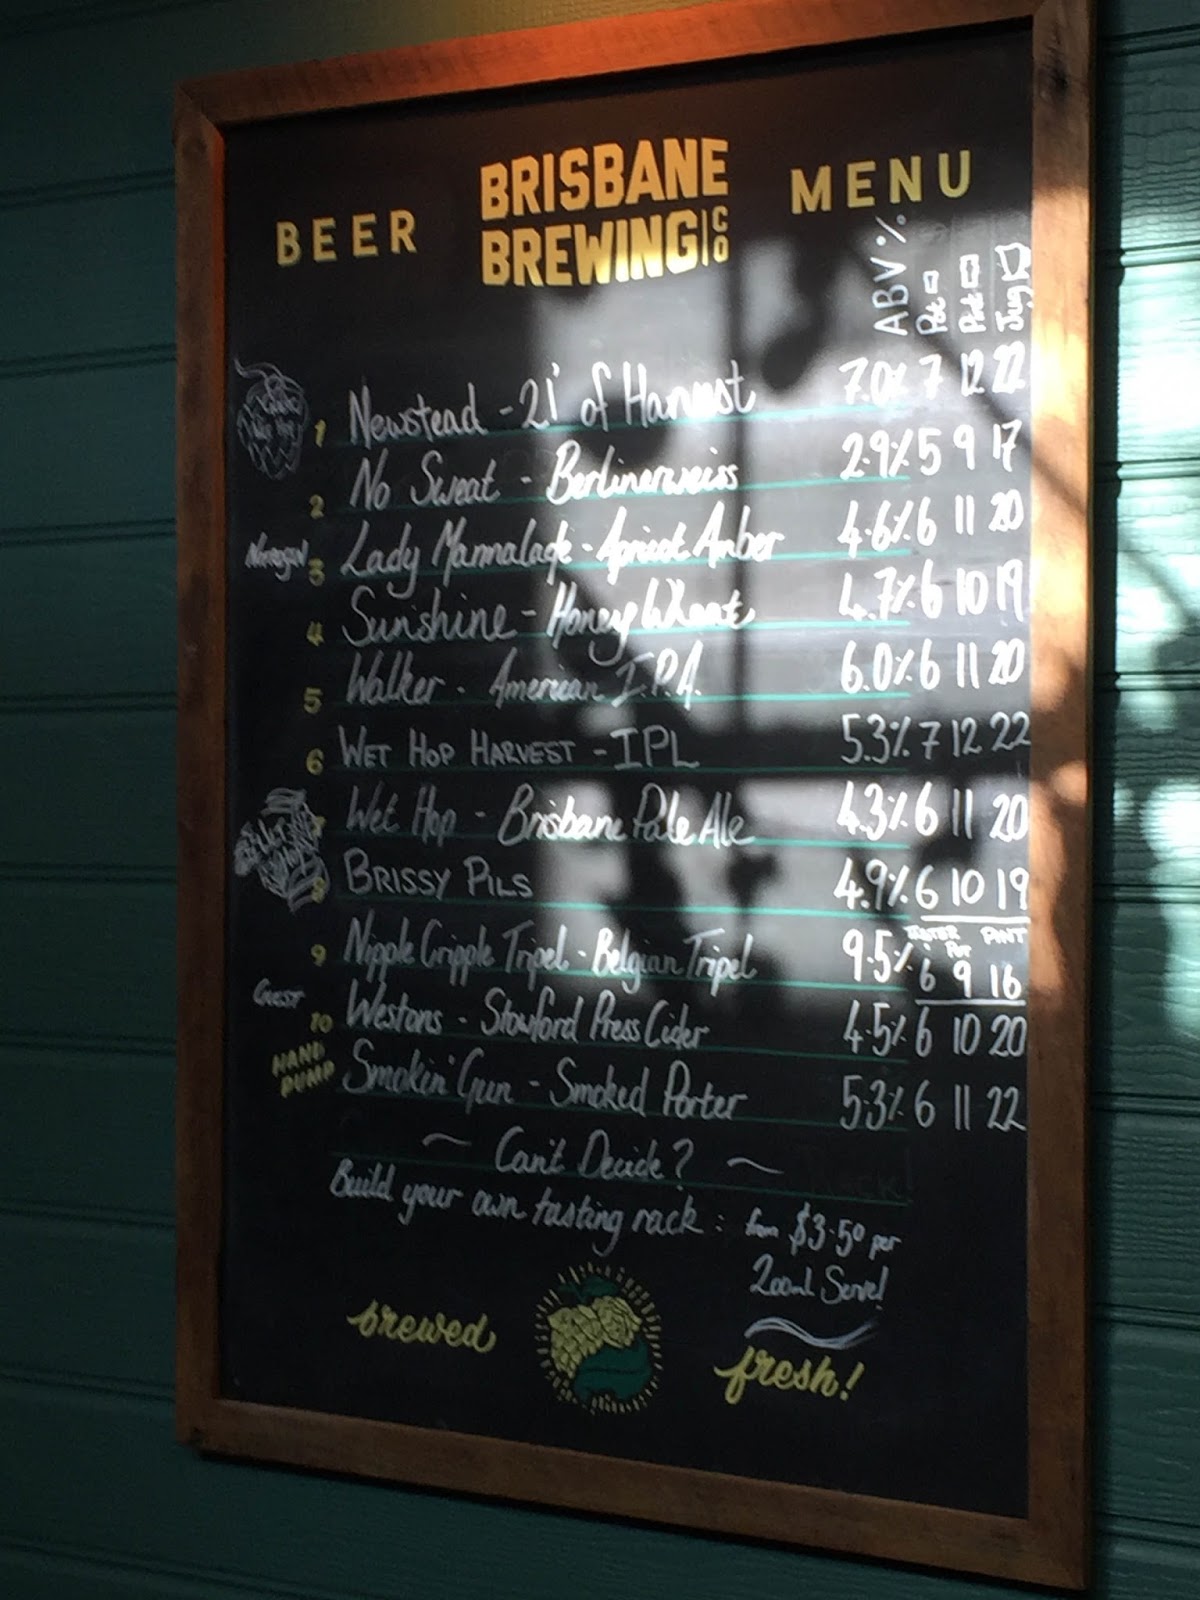 BEER BRISBANE BREWING CO MENU
ABV% Pot Pint Jug
1 Newstead - 21' of Harvest 7.0% 7 12 22
2 No Sweat - Berlinerweiss 2.9% 5 9 17
3 Lady Marmalade - Apricot Amber 4.6% 6 11 20
4 Sunshine - Honey Wheat 4.7% 6 10 19
5 Walker - American I.P.A. 6.0% 6 11 20
6 WET HOP HARVEST - IPL 5.3% 7 12 22
7 Wet Hop - Brisbane Pale Ale 4.3% 6 11 20
8 BRISSY PILS 4.9% 6 10 19
POT PINT
9 Nipple Cripple Tripel - Belgian Tripel 9.5% 6 9 16
GUEST 10 Westons - Stowford Press Cider 4.5% 6 10 20
HAND PUMP Smokin' Gun - Smoked Porter 5.3% 6 11 22
~ Can't Decide? ~
Build your own tasting rack : from $3.50 per
200ml Serve!
brewed fresh!